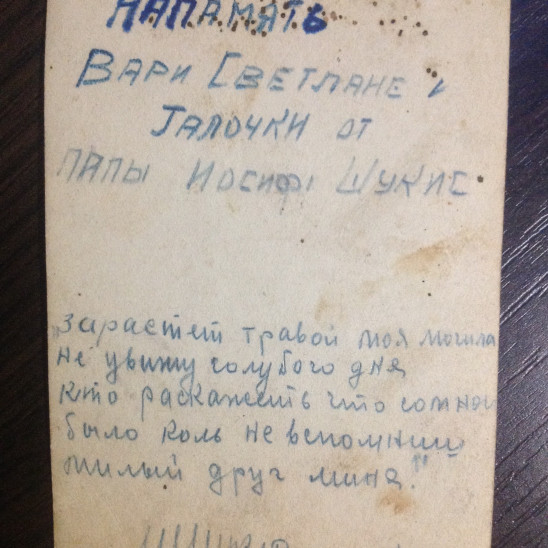 НАПАМЯТЬ
ВАРИ СВЕТЛАНЕ и
ГАЛОЧКИ ОТ
ПАПЫ ИОСИФ ШУКИС
"Зарастет травой моя могила
не увижу голубого дня
кто раскажеть что сомной
было коль не вспомниш
милый друг миня."